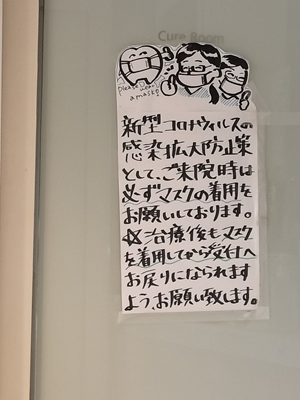 Cure Room
please wear
a mask!
新型コロナウィルスの
感染拡大防止策
として、ご来院時は
必ずマスクの着用を
お願いしております。
☆治療後もマスク
を着用してから受付へ
お戻りになられます
よう、お願い致します。